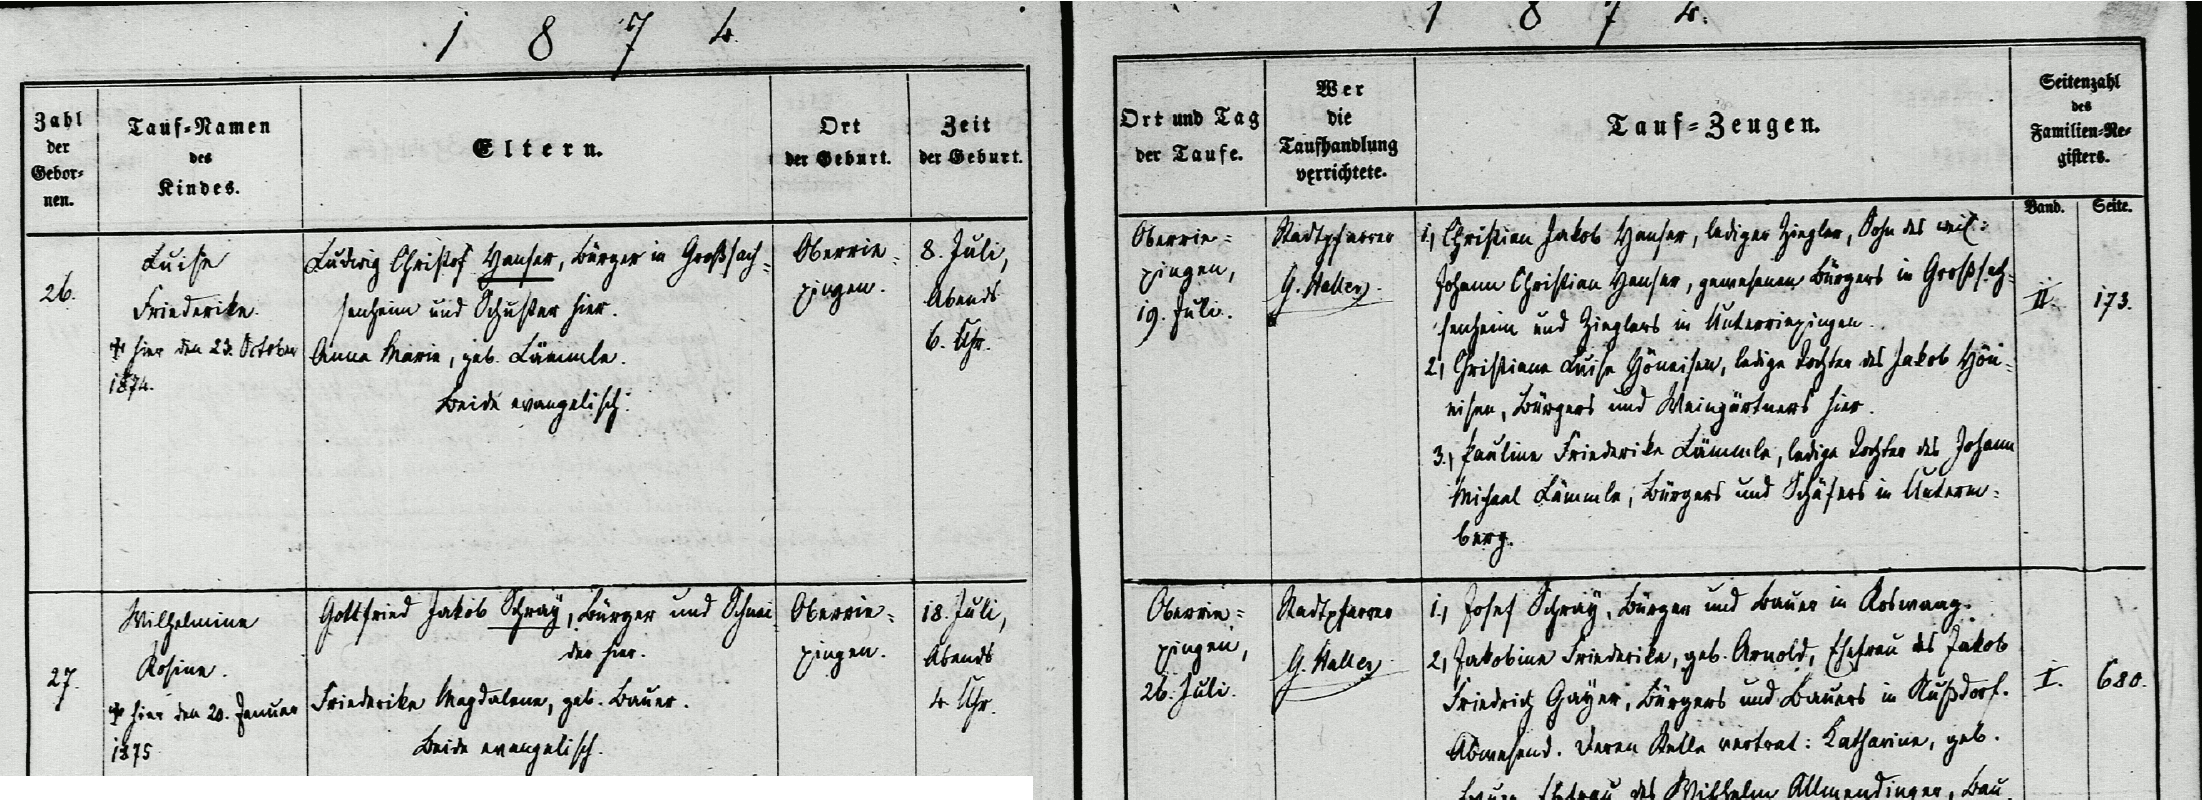 1 8 7 4.
Zahl der Gebornen.
Tauf=Namen des Kindes.
Eltern.
Ort der Geburt.
Zeit der Geburt.
26.
Luise
Friederike.
† hier den 23. October
1874.
Ludwig Christof Hauser, Bürger in Großsach=
senheim und Schuster hier.
Anna Marie, geb. Lämmle.
Beide evangelisch.
Oberrie=
xingen.
8. Juli,
Abends
6. Uhr.
27.
Wilhelmine
Rosine.
† hier den 20. Januar
1875
Gottfried Jakob Schray, Bürger und Schnei
der hier.
Friederike Magdalene, geb. Bauer.
Beide evangelisch.
Oberrie=
xingen.
18. Juli,
Abends
4 Uhr.
1 8 7 4.
Ort und Tag der Taufe.
Wer die Taufhandlung verrichtete.
Tauf=Zeugen.
Seitenzahl des Familien=Re=
gisters.
Band.
Seite.
Oberrie=
xingen,
19. Juli.
Stadtpfarrer
G. Haller.
1., Christian Jakob Hauser, lediger Ziegler, Sohn des weil:
Johann Christian Hauser, gewesenen Bürgers in Großsach=
senheim und Zieglers in Unterriexingen.
2., Christiane Luise Höneisen, ledige Tochter des Jakob Hön=
eisen, Bürgers und Weingärtners hier.
3., Pauline Friederike Lämmle, ledige Tochter des Johann
Michael Lämmle, Bürgers und Schäfers in Unterm=
berg.
II.
173.
Oberrie=
xingen,
26. Juli.
Stadtpfarrer
G. Haller
1., Josef Schray, Bürger und Bauer in Roswaag.
2., Jakobine Friederike, geb. Arnold, Ehefrau des Jakob
Friedrich Gayer, Bürgers und Bauers in Nußdorf.
Abwesend. Deren Stelle vertrat: Katharine, geb.
Ehefrau des Wilhelm Allmendinger, Bau
I.
680.